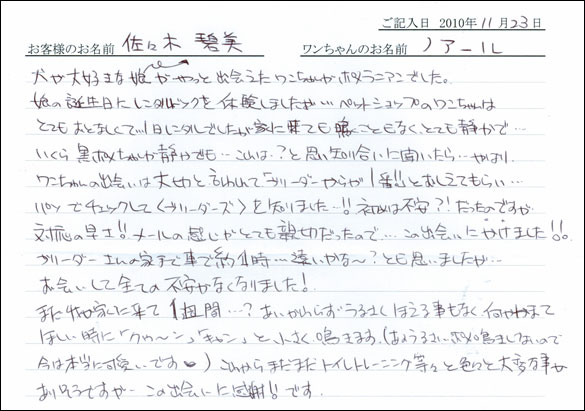 ご記入日 2010年11月23日
お客様のお名前 佐々木 碧美 ワンちゃんのお名前 ノアール
犬が大好きな娘がやっと出会えたワンちゃんがポメラニアンでした。
娘の誕生日にレンタルドックを体験しましたが…ペットショップのワンちゃんは
とてもおとなしくて、1日レンタルでしたが家に来ても鳴くこともなく、とても静かで…
いくら黒ポメちゃんが静かでも…これは…?と思い知り合いに聞いたら…やはり
ワンちゃんの出会いは大切と言われて「ブリーダーさんからが1番!!」とおしえてもらい…
パソでチェックして〈ブリーダーズ〉を知りました…!! 初めは不安?!だったのですが
対応の早さ!!メールの感じがとても親切だったので…この出会いにかけました!!
ブリーダーさんの家まで車で約1時…遠いかな~?とも思いましたが…
お会いして全ての不安がなくなりました!
まだ我が家に来て1週間…?あいかわらずうるさくほえる事もなく何かかまって
ほしい時に「クゥ~ン」「キャン」と小さく鳴きます。(あまりうるさいポメの鳴きしないので
今は本当に可愛いです♥)これからまだまだトイレトレーニング等々と色々と大変事が
ありそうですが…この出会いに感謝!!です。